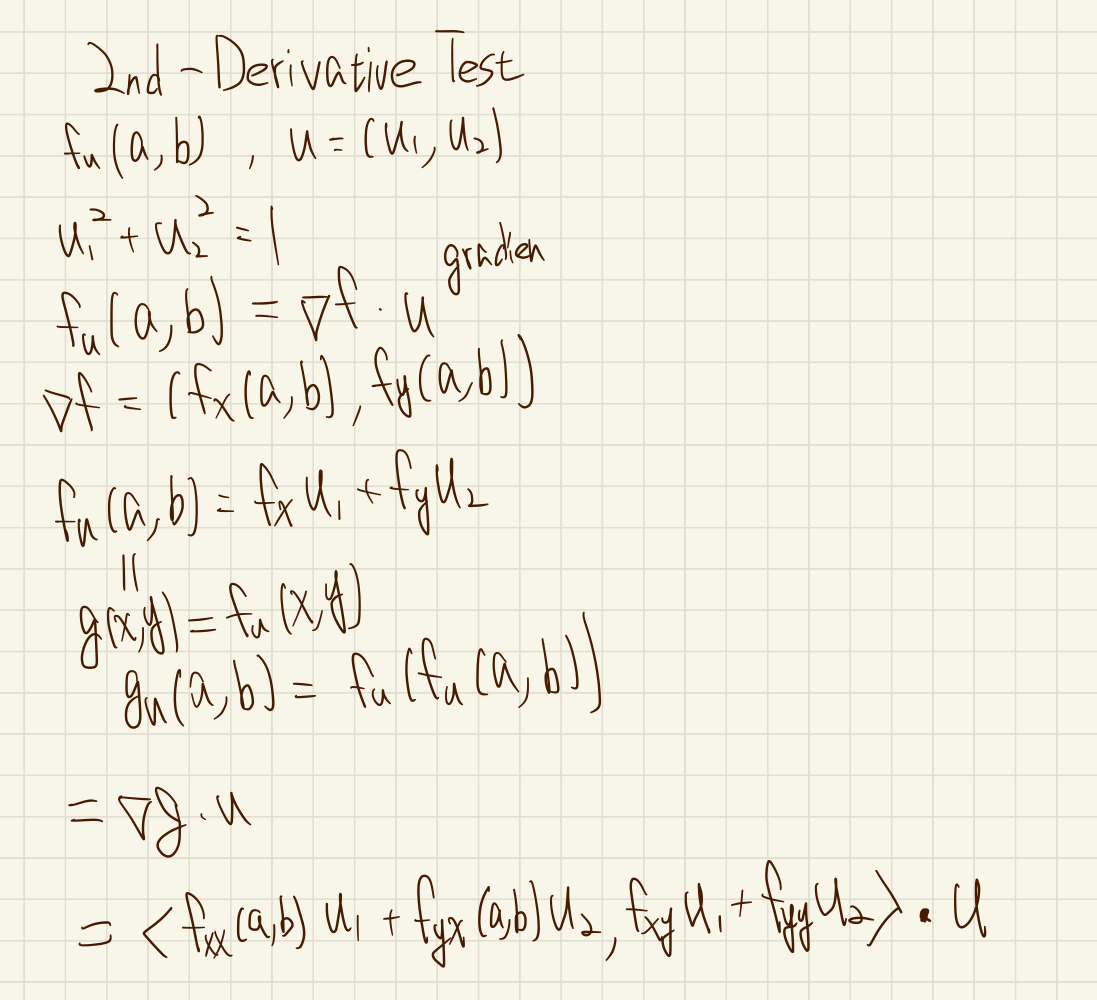 2nd-Derivative Test
fu(a,b), u=(u₁,u₂)
u₁²+u₂²=1
gradien
fu(a,b)=∇f·u
∇f=(fx(a,b),fy(a,b))
fu(a,b)=fxu₁+fyu₂
||
g(x,y)=fu(x,y)
gu(a,b)=fu(fu(a,b))
=∇g·u
=<fxx(a,b)u₁+fyx(a,b)u₂,fxyu₁+fyyu₂>·u